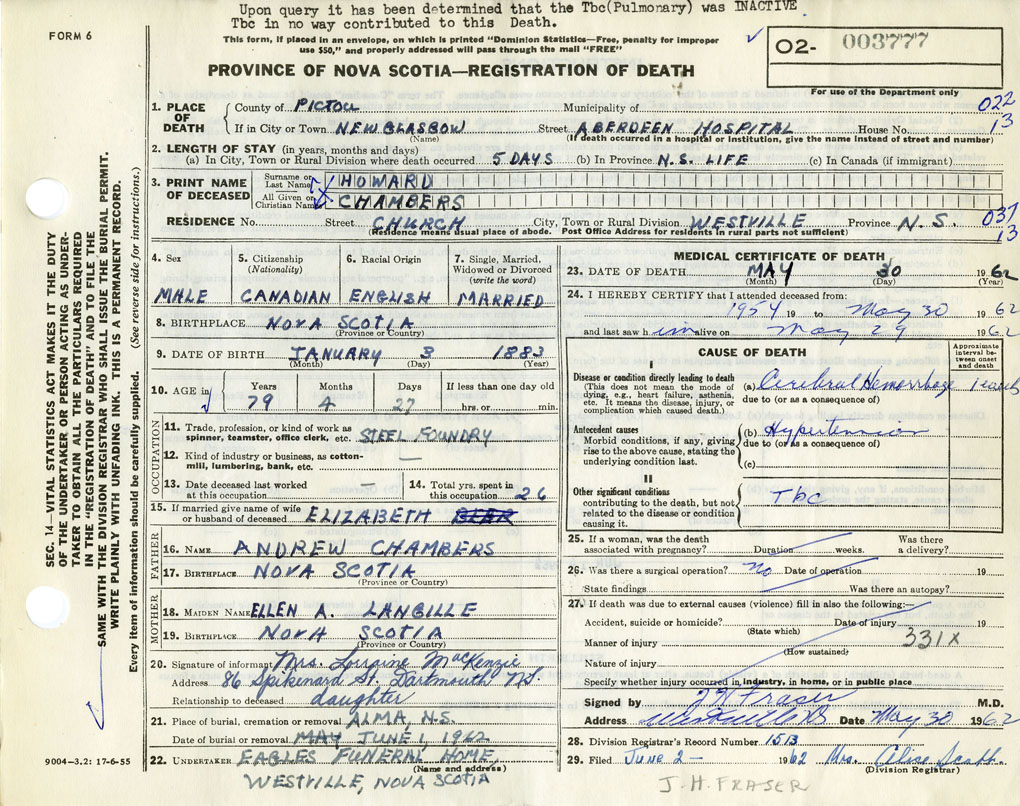 Upon query it has been determined that the Tbc(Pulmonary) was INACTIVE
Tbc in no way contributed to this Death.
FORM 6
This form, if placed in an envelope, on which is printed "Dominion Statistics—Free, penalty for improper
use $50," and properly addressed will pass through the mail "FREE"
02- 003777
PROVINCE OF NOVA SCOTIA—REGISTRATION OF DEATH
For use of the Department only
1. PLACE OF DEATH
County of PICTOU Municipality of 022
If in City or Town NEW GLASGOW Street ABERDEEN HOSPITAL House No. 13
(Name) (If death occurred in a hospital or institution, give the name instead of street and number)
2. LENGTH OF STAY (in years, months and days)
(a) In City, Town or Rural Division where death occurred 5 DAYS (b) In Province N.S. LIFE (c) In Canada (if immigrant)
3. PRINT NAME OF DECEASED
Surname or Last Name HOWARD
All Given or Christian Name CHAMBERS
RESIDENCE No. Street CHURCH City, Town or Rural Division WESTVILLE Province N.S. 037
13
(Residence means usual place of abode. Post Office Address for residents in rural parts not sufficient)
4. Sex
MALE
5. Citizenship
(Nationality)
CANADIAN
6. Racial Origin
ENGLISH
7. Single, Married,
Widowed or Divorced
(write the word)
MARRIED
8. BIRTHPLACE NOVA SCOTIA
(Province or Country)
9. DATE OF BIRTH JANUARY 3 1883
(Month) (Day) (Year)
10. AGE in
Years Months Days If less than one day old
79 4 27 hrs. or min.
OCCUPATION
11. Trade, profession, or kind of work as
spinner, teamster, office clerk, etc. STEEL FOUNDRY
12. Kind of industry or business, as cotton-
mill, lumbering, bank, etc. —
13. Date deceased last worked
at this occupation —
14. Total yrs. spent in
this occupation 26
15. If married give name of wife
or husband of deceased ELIZABETH
FATHER
16. NAME ANDREW CHAMBERS
17. BIRTHPLACE NOVA SCOTIA
(Province or Country)
MOTHER
18. MAIDEN NAME ELLEN A. LANGILLE
19. BIRTHPLACE NOVA SCOTIA
(Province or Country)
20. Signature of informant Mrs. Lorraine MacKenzie
Address 86 Spikenard St. Dartmouth N.S.
Relationship to deceased daughter
21. Place of burial, cremation or removal ALMA, N.S.
Date of burial or removal MAY JUNE 1, 1962
22. UNDERTAKER EAGLES FUNERAL HOME,
(Name and address)
WESTVILLE, NOVA SCOTIA
MEDICAL CERTIFICATE OF DEATH
23. DATE OF DEATH MAY 30 1962
(Month) (Day) (Year)
24. I HEREBY CERTIFY that I attended deceased from:
1954 19 to May 30 1962
and last saw him alive on May 29 1962
CAUSE OF DEATH
Approximate
interval be-
tween onset
and death
I
Disease or condition directly leading to death
(This does not mean the mode of
dying, e.g., heart failure, asthenia,
etc. It means the disease, injury, or
complication which caused death.)
(a) Cerebral Hemorrhage 1 week
due to (or as a consequence of)
Antecedent causes
Morbid conditions, if any, giving
rise to the above cause, stating the
underlying condition last.
(b) Hypertension
due to (or as a consequence of)
(c)
II
Other significant conditions
contributing to the death, but not
related to the disease or condition
causing it.
Tbc
25. If a woman, was the death
associated with pregnancy? Duration weeks. Was there
a delivery?
26. Was there a surgical operation? No Date of operation 19
State findings Was there an autopsy?
27. If death was due to external causes (violence) fill in also the following:—
Accident, suicide or homicide? Date of injury 19
(State which)
Manner of injury 331X
(How sustained)
Nature of injury
Specify whether injury occurred in industry, in home, or in public place
Signed by J H Fraser M.D.
Address Westville N.S. Date May 30 1962
28. Division Registrar's Record Number 1513
29. Filed June 2 - 1962 Mrs. Alise
(Division Registrar)
J. H. FRASER
SEC. 14—VITAL STATISTICS ACT MAKES IT THE DUTY
OF THE UNDERTAKER OR PERSON ACTING AS UNDER-
TAKER TO OBTAIN ALL THE PARTICULARS REQUIRED
IN THE "REGISTRATION OF DEATH" AND TO FILE THE
SAME WITH THE DIVISION REGISTRAR WHO SHALL ISSUE THE BURIAL PERMIT.
WRITE PLAINLY WITH UNFADING INK. THIS IS A PERMANENT RECORD.
Every item of information should be carefully supplied. (See reverse side for instructions.)
9004-3.2: 17-6-55